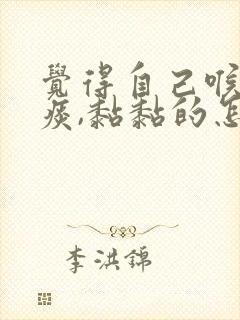 覺得自己喉
痰,黏黏的怎
李洪錦